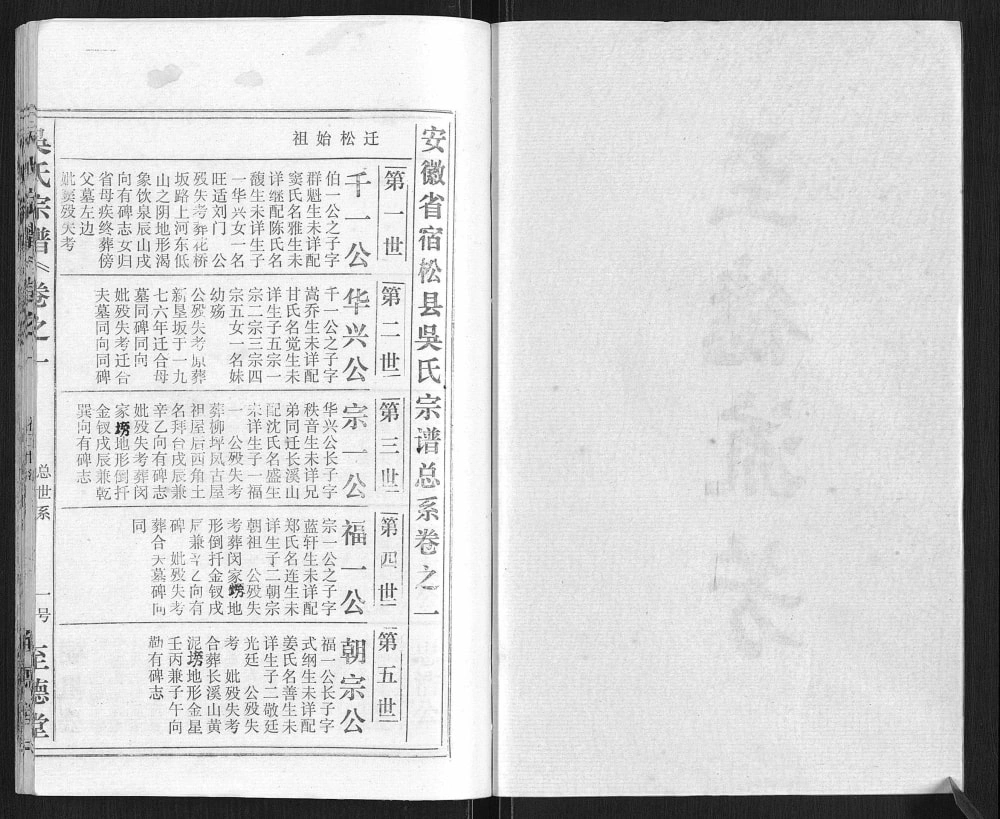 安徽省宿松县吳氏宗谱总系卷之一
迁松始祖
第一世
千一公
伯一公之子字
群魁生未详配
窦氏名雅生未
详继配陈氏名
馥生未详生子
一华兴女一名
旺适刘门　公
殁失考葬花桥
坂路上河东低
山之阴地形渴
象饮泉辰山戌
向有碑志女归
省母疾终葬傍
父墓左边
妣窦殁失考
第二世
华兴公
千一公之子字
嵩乔生未详配
甘氏名觉生未
详生子五宗一
宗二宗三宗四
宗五女一名妹
幼殇　　公
公殁失考原葬
新垦坂于一九
七六年迁合母
墓同碑同向
妣殁失考迁合
夫墓同向同碑
第三世
宗一公
华兴公长子字
秩音生未详兄
弟同迁长溪山
配沈氏名盛生
未详生子一福
一　公殁失考
葬柳坪凤古屋
祖屋后西角土
名拜台戌辰兼
辛乙向有碑志
妣殁失考葬闵
家塝地形倒扦
金钗戌辰兼乾
巽向有碑志
第四世
福一公
宗一公之子字
蓝轩生未详配
郑氏名连生未
详生子二朝宗
朝祖　公殁失
考葬闵家塝地
形倒扦金钗戌
辰兼辛乙向有
碑　妣殁失考
葬合夫墓碑向
同
第五世
朝宗公
福一公长子字
式纲生未详配
姜氏名善生未
详生子二敬廷
光廷　公殁失
考　妣殁失考
合葬长溪山黄
泥塝地形金星
壬丙兼子午向
勒有碑志
吳氏宗谱
卷之一
总世系
一号
至德堂